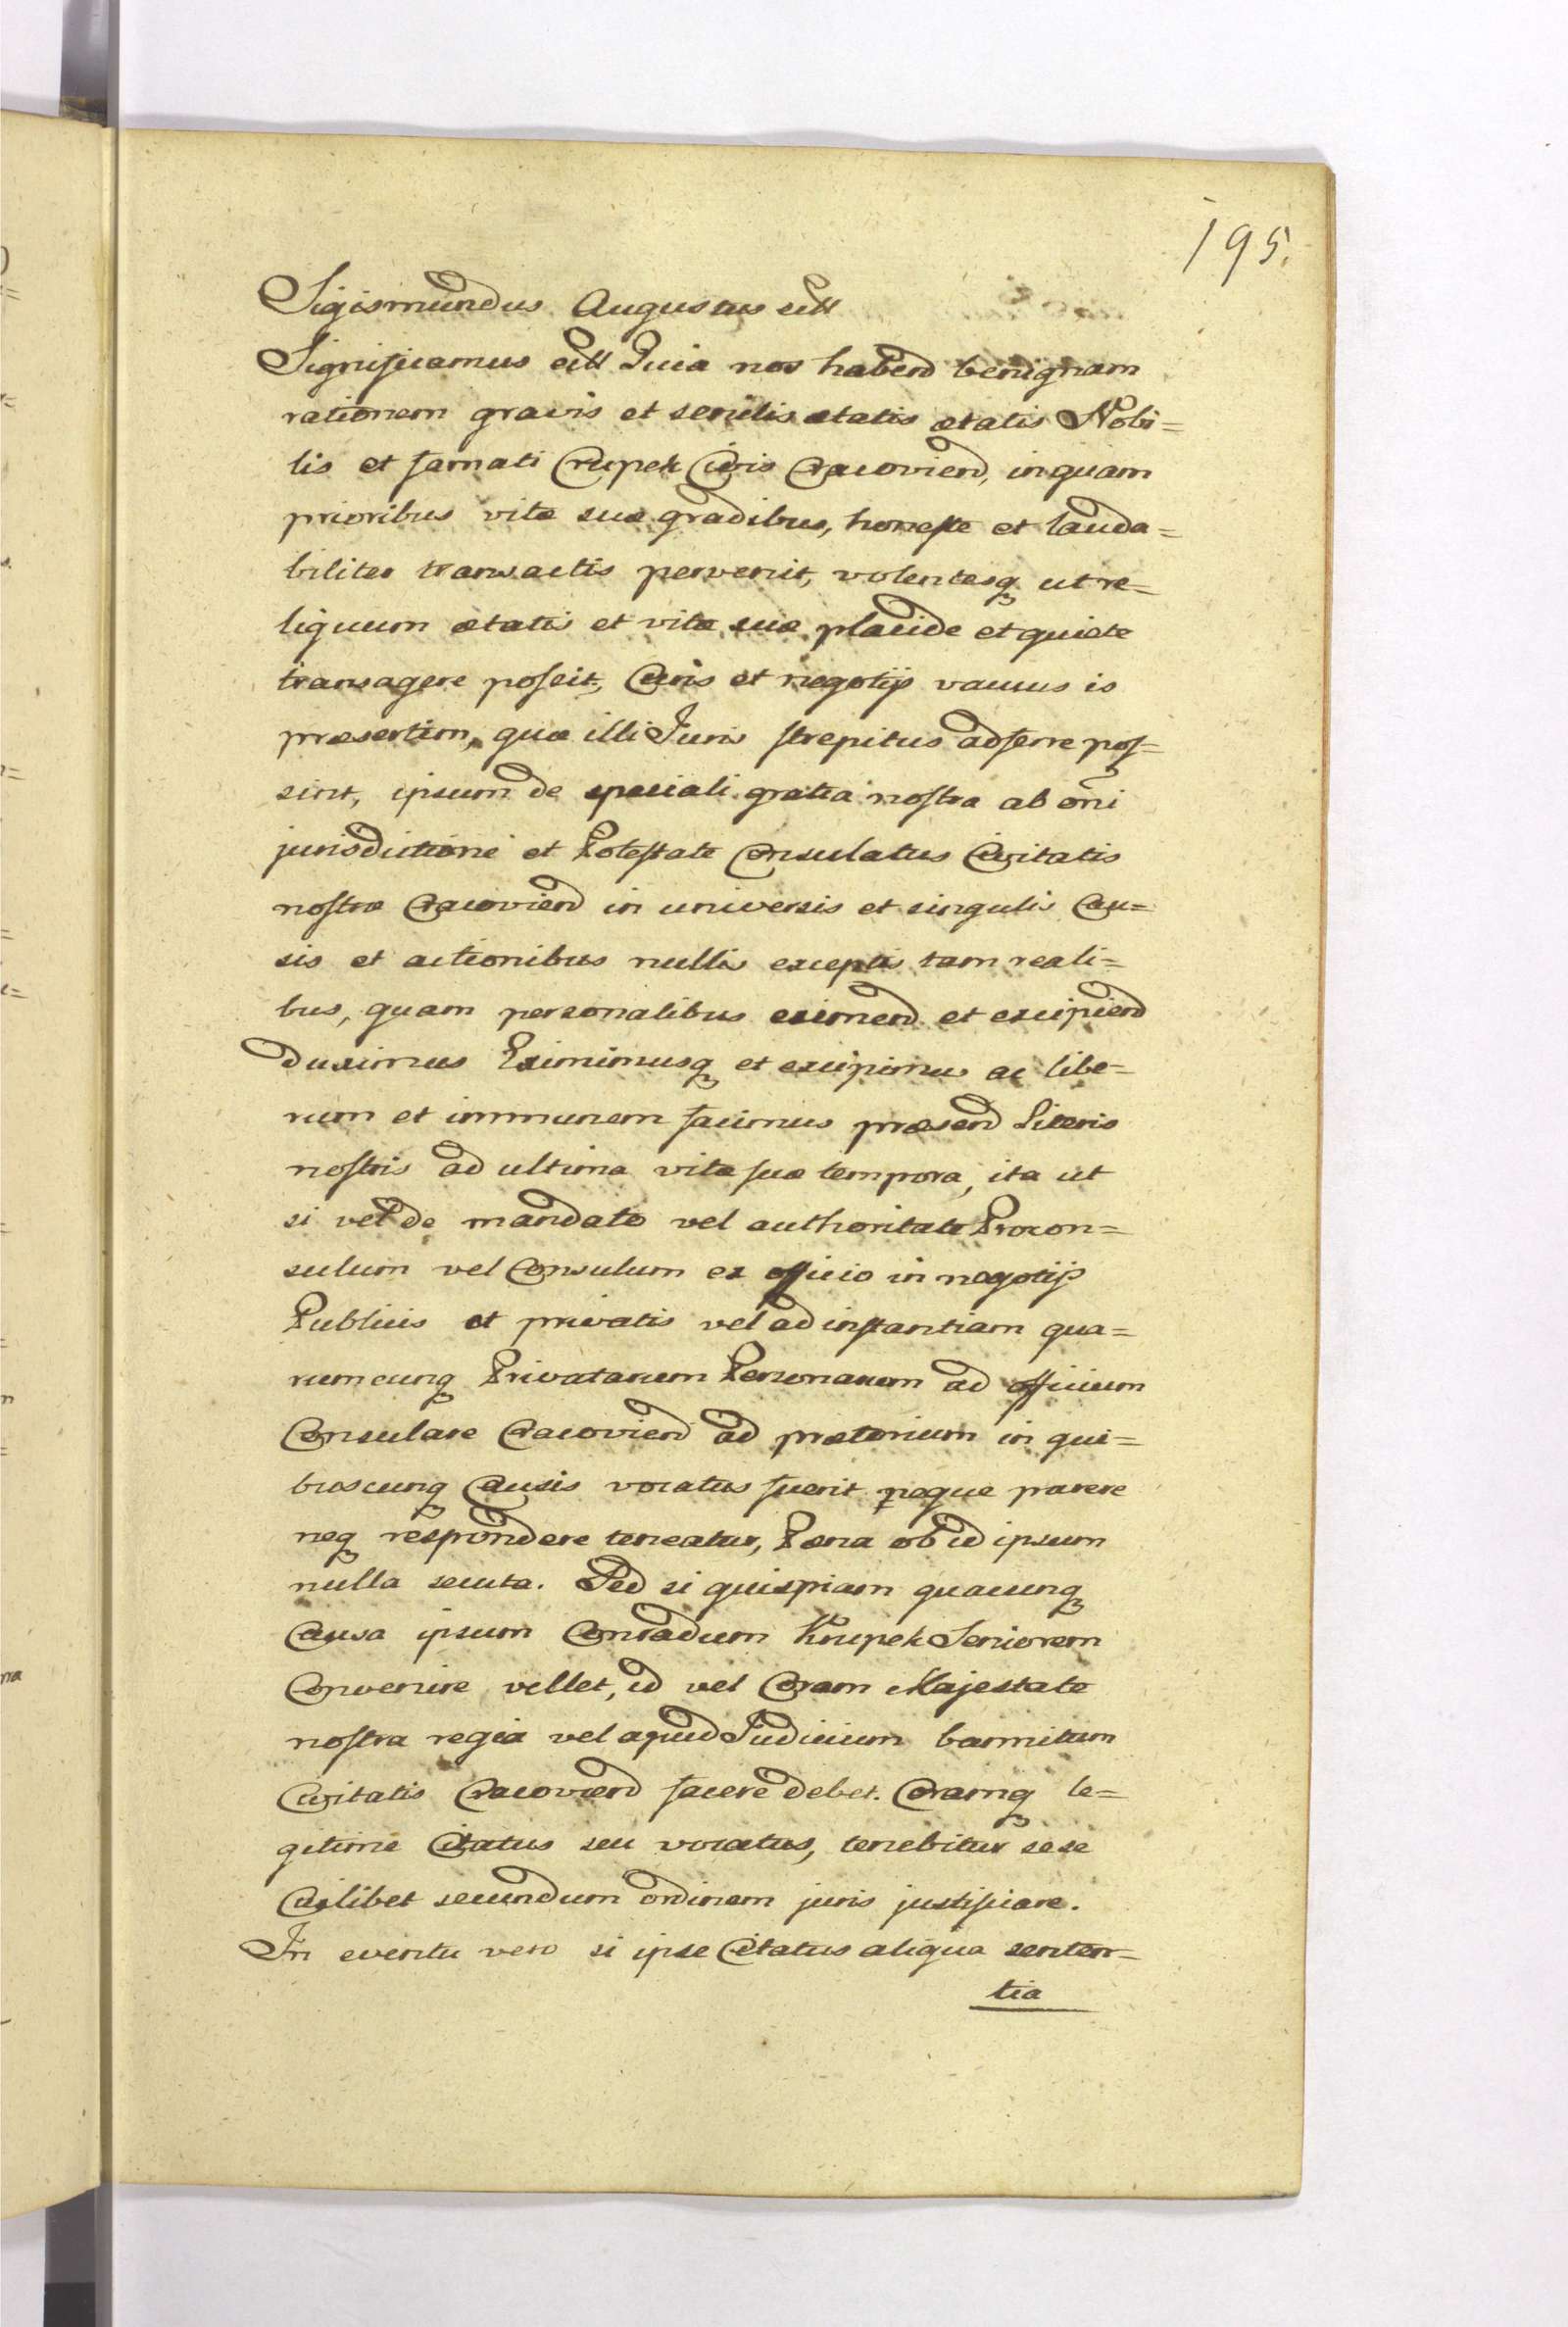 195.
Sigismundus Augustus etc
Significamus etc Quia nos habend benignam
rationem gravis et senilis ætatis ætatis Nobi=
lis et famati Crupek Civis Cracoviend, in quam
prioribus vitæ suæ gradibus, honeste et lauda=
biliter transactis pervenit, volentesq ut re=
liquum ætatis et vitæ suæ placide et quiete
transagere poseit, Curis et negotijs vacuus is
præsertim, quæ illi Juris strepitus adferre pos=
sint, ipsum de speciali gratia nostra ab oñi
jurisdictione et Potestate Consulatus Civitatis
nostræ Cracoviend in universis et singulis Cau=
sis et actionibus nullis exceptis tam reali=
bus, quam personalibus eximend et excipiend
duximus Eximimusq et excipimus ac libe=
rum et immunem facimus præsend Literis
nostris ad ultima vitæ suæ tempora, ita ut
si vel de mandato vel authoritate Procon=
sulum vel Consulum ex officio in negotijs
Publicis et privatis vel ad instantiam qua=
rumcunq Privatarum Personarum ad officium
Consulare Cracoviend ad prætorium in qui=
buscunq Causis vocatus fuerit neque parere
neq respondere teneatur, Pæna ob id ipsum
nulla secuta. Sed si quispiam quacunq
Causa ipsum Conradum Krupek Seniorem
Convenire vellet, id vel Coram Majestate
nostra regia vel apud Judicium bannitum
Civitatis Cracoviend facere debet. Coramq le=
gitime Citatus seu vocatus, tenebitur sese
Cuilibet secundum ordinem juris justificare.
In eventu vero si ipse Citatus aliqua senten=
tia